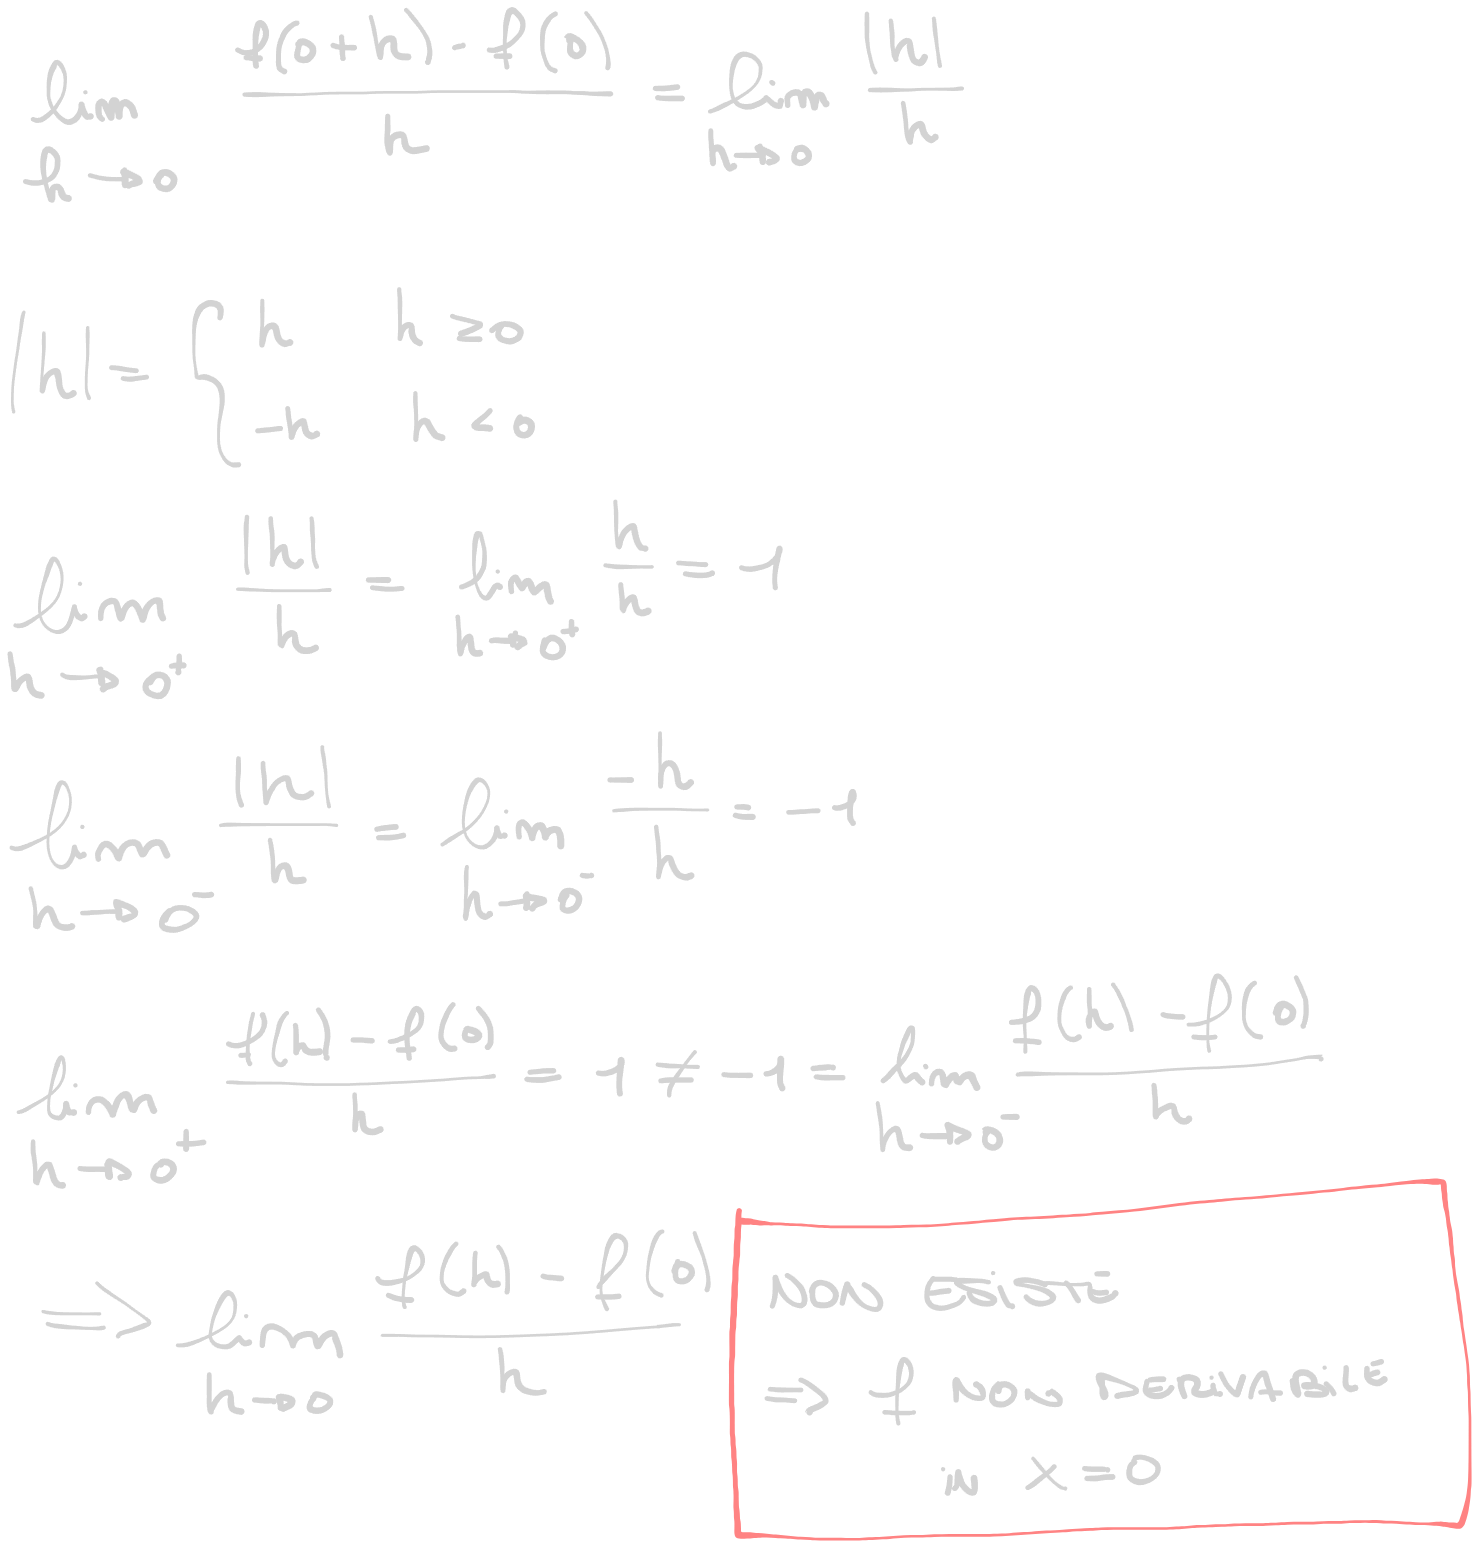 lim_{h→0} \frac{f(0+h) - f(0)}{h} = lim_{h→0} \frac{|h|}{h}
|h| = { h   h ≥ 0
-h   h < 0
lim_{h→0⁺} \frac{|h|}{h} = lim_{h→0⁺} \frac{h}{h} = 1
lim_{h→0⁻} \frac{|h|}{h} = lim_{h→0⁻} \frac{-h}{h} = -1
lim_{h→0⁺} \frac{f(h) - f(0)}{h} = 1 ≠ -1 = lim_{h→0⁻} \frac{f(h) - f(0)}{h}
⇒ lim_{h→0} \frac{f(h) - f(0)}{h} NON ESISTE
⇒ f NON DERIVABILE
IN x = 0